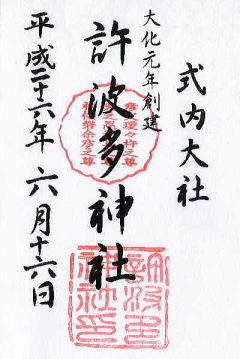 式内大社
大化元年創建
許波多神社
平成二十六年 六月十六日